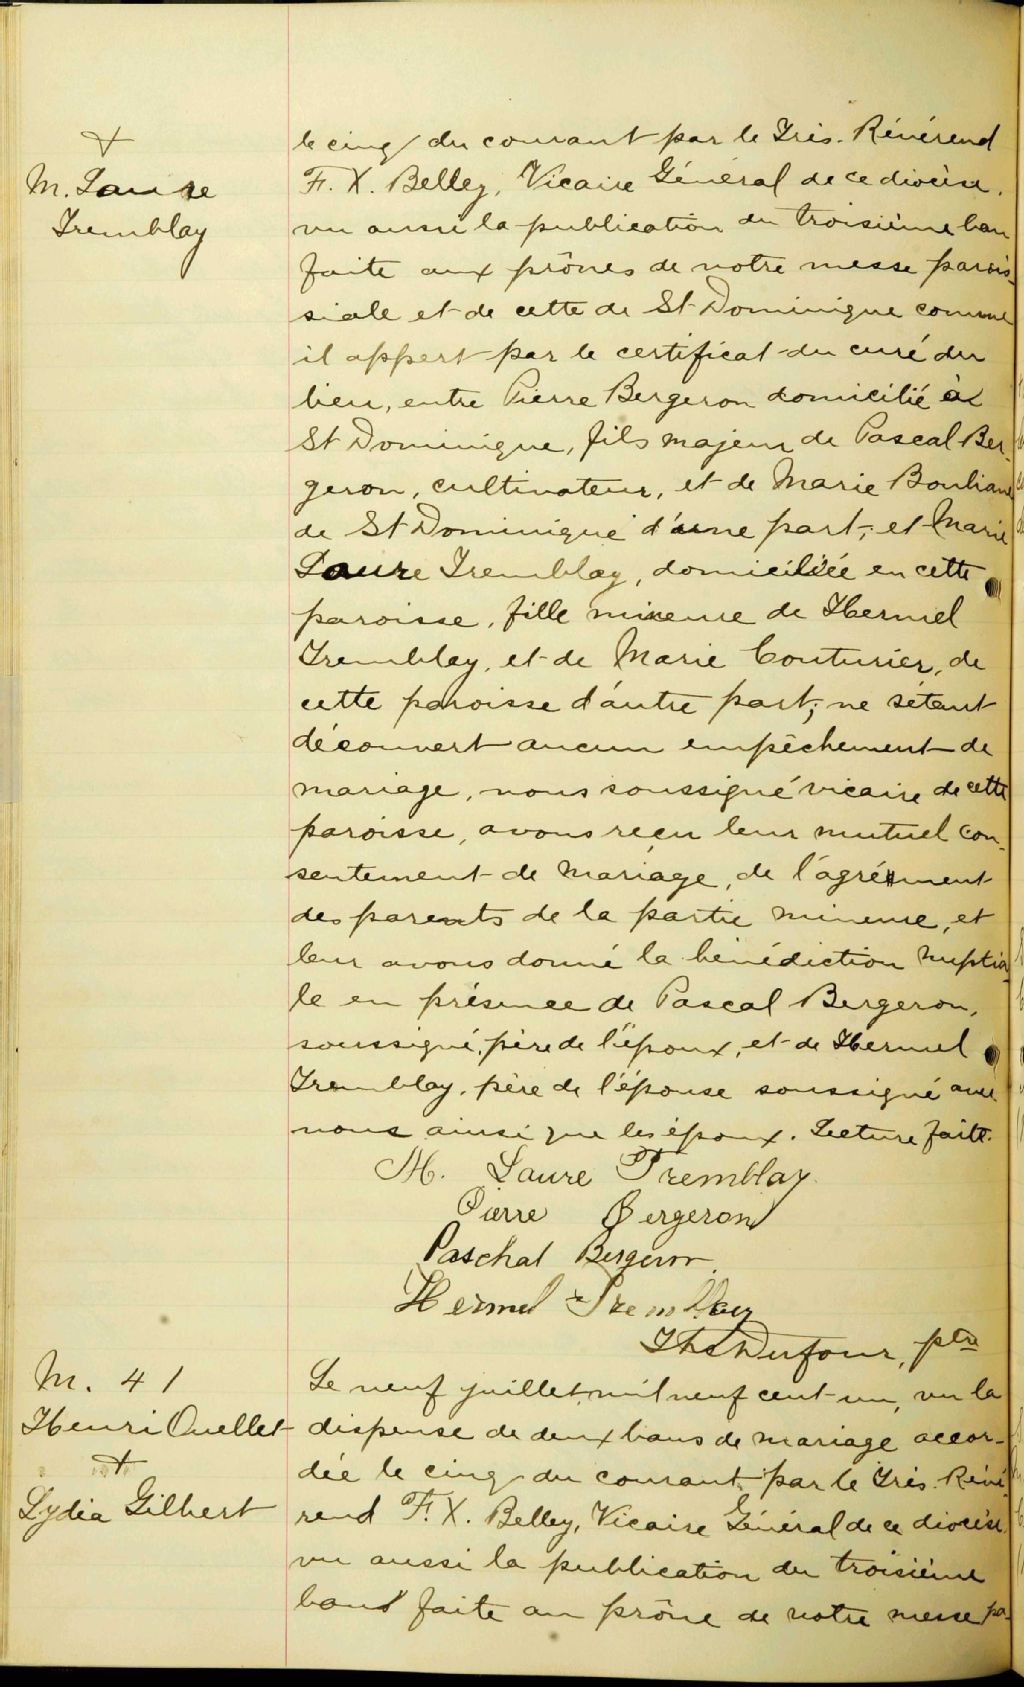 +
M. Laure
Tremblay
le cinq du courant par le Très. Révérend
F. X. Belley, Vicaire Général de ce diocèse.
vu aussi la publication du troisième ban
faite aux prônes de notre messe parois-
siale et de cette de St Dominique comme
il appert par le certificat du curé du
lieu, entre Pierre Bergeron domicilié à
St Dominique, fils majeur de Pascal Ber-
geron, cultivateur, et de Marie Bouliane
de St Dominique d'une part; et Marie
Laure Tremblay, domiciliée en cette
paroisse, fille mineure de Hermel
Tremblay, et de Marie Couturier, de
cette paroisse d'autre part; ne s'étant
découvert aucun empêchement de
mariage, nous soussigné vicaire de cette
paroisse, avons reçu leur mutuel con-
sentement de mariage, de l'agrément
des parents de la partie mineure, et
leur avons donné la bénédiction nuptia-
le en présence de Pascal Bergeron,
soussigné, père de l'époux, et de Hermel
Tremblay, père de l'épouse soussigné avec
nous ainsi que les époux. Lecture faite.
M. Laure Tremblay
Pierre Bergeron
Paschal Bergeron
Hermel Tremblay
Ths Dufour, ptre
M. 41
Henri Ouellet
+
Lydia Gilbert
Le neuf juillet, mil neuf cent un, vu la
dispense de deux bans de mariage accor-
dée le cinq du courant par le Très Révé-
rend F. X. Belley, Vicaire Général de ce diocèse,
vu aussi la publication du troisième
ban faite au prône de notre messe pa-